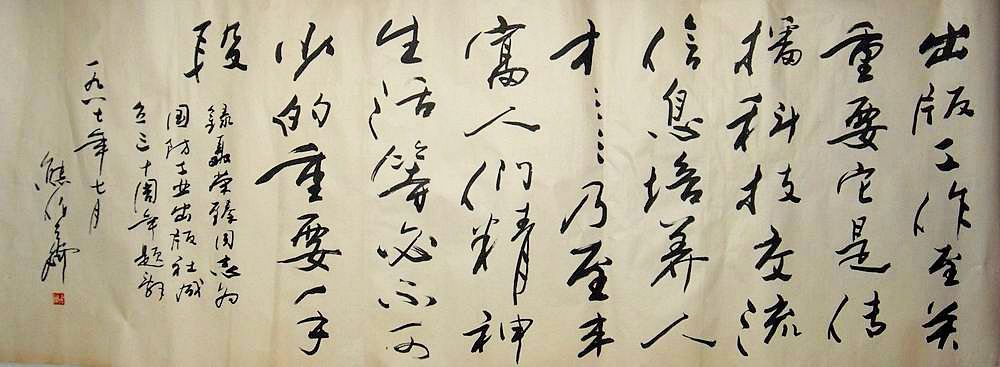 出版工作至关
重要它是传
播科技交流
信息培养人
才……乃至丰
富人们精神
生活等必不可
少的重要手
段
录聂荣臻同志为
国防工业出版社成
立三十周年题辞
一九八七年七月
熊伯齐